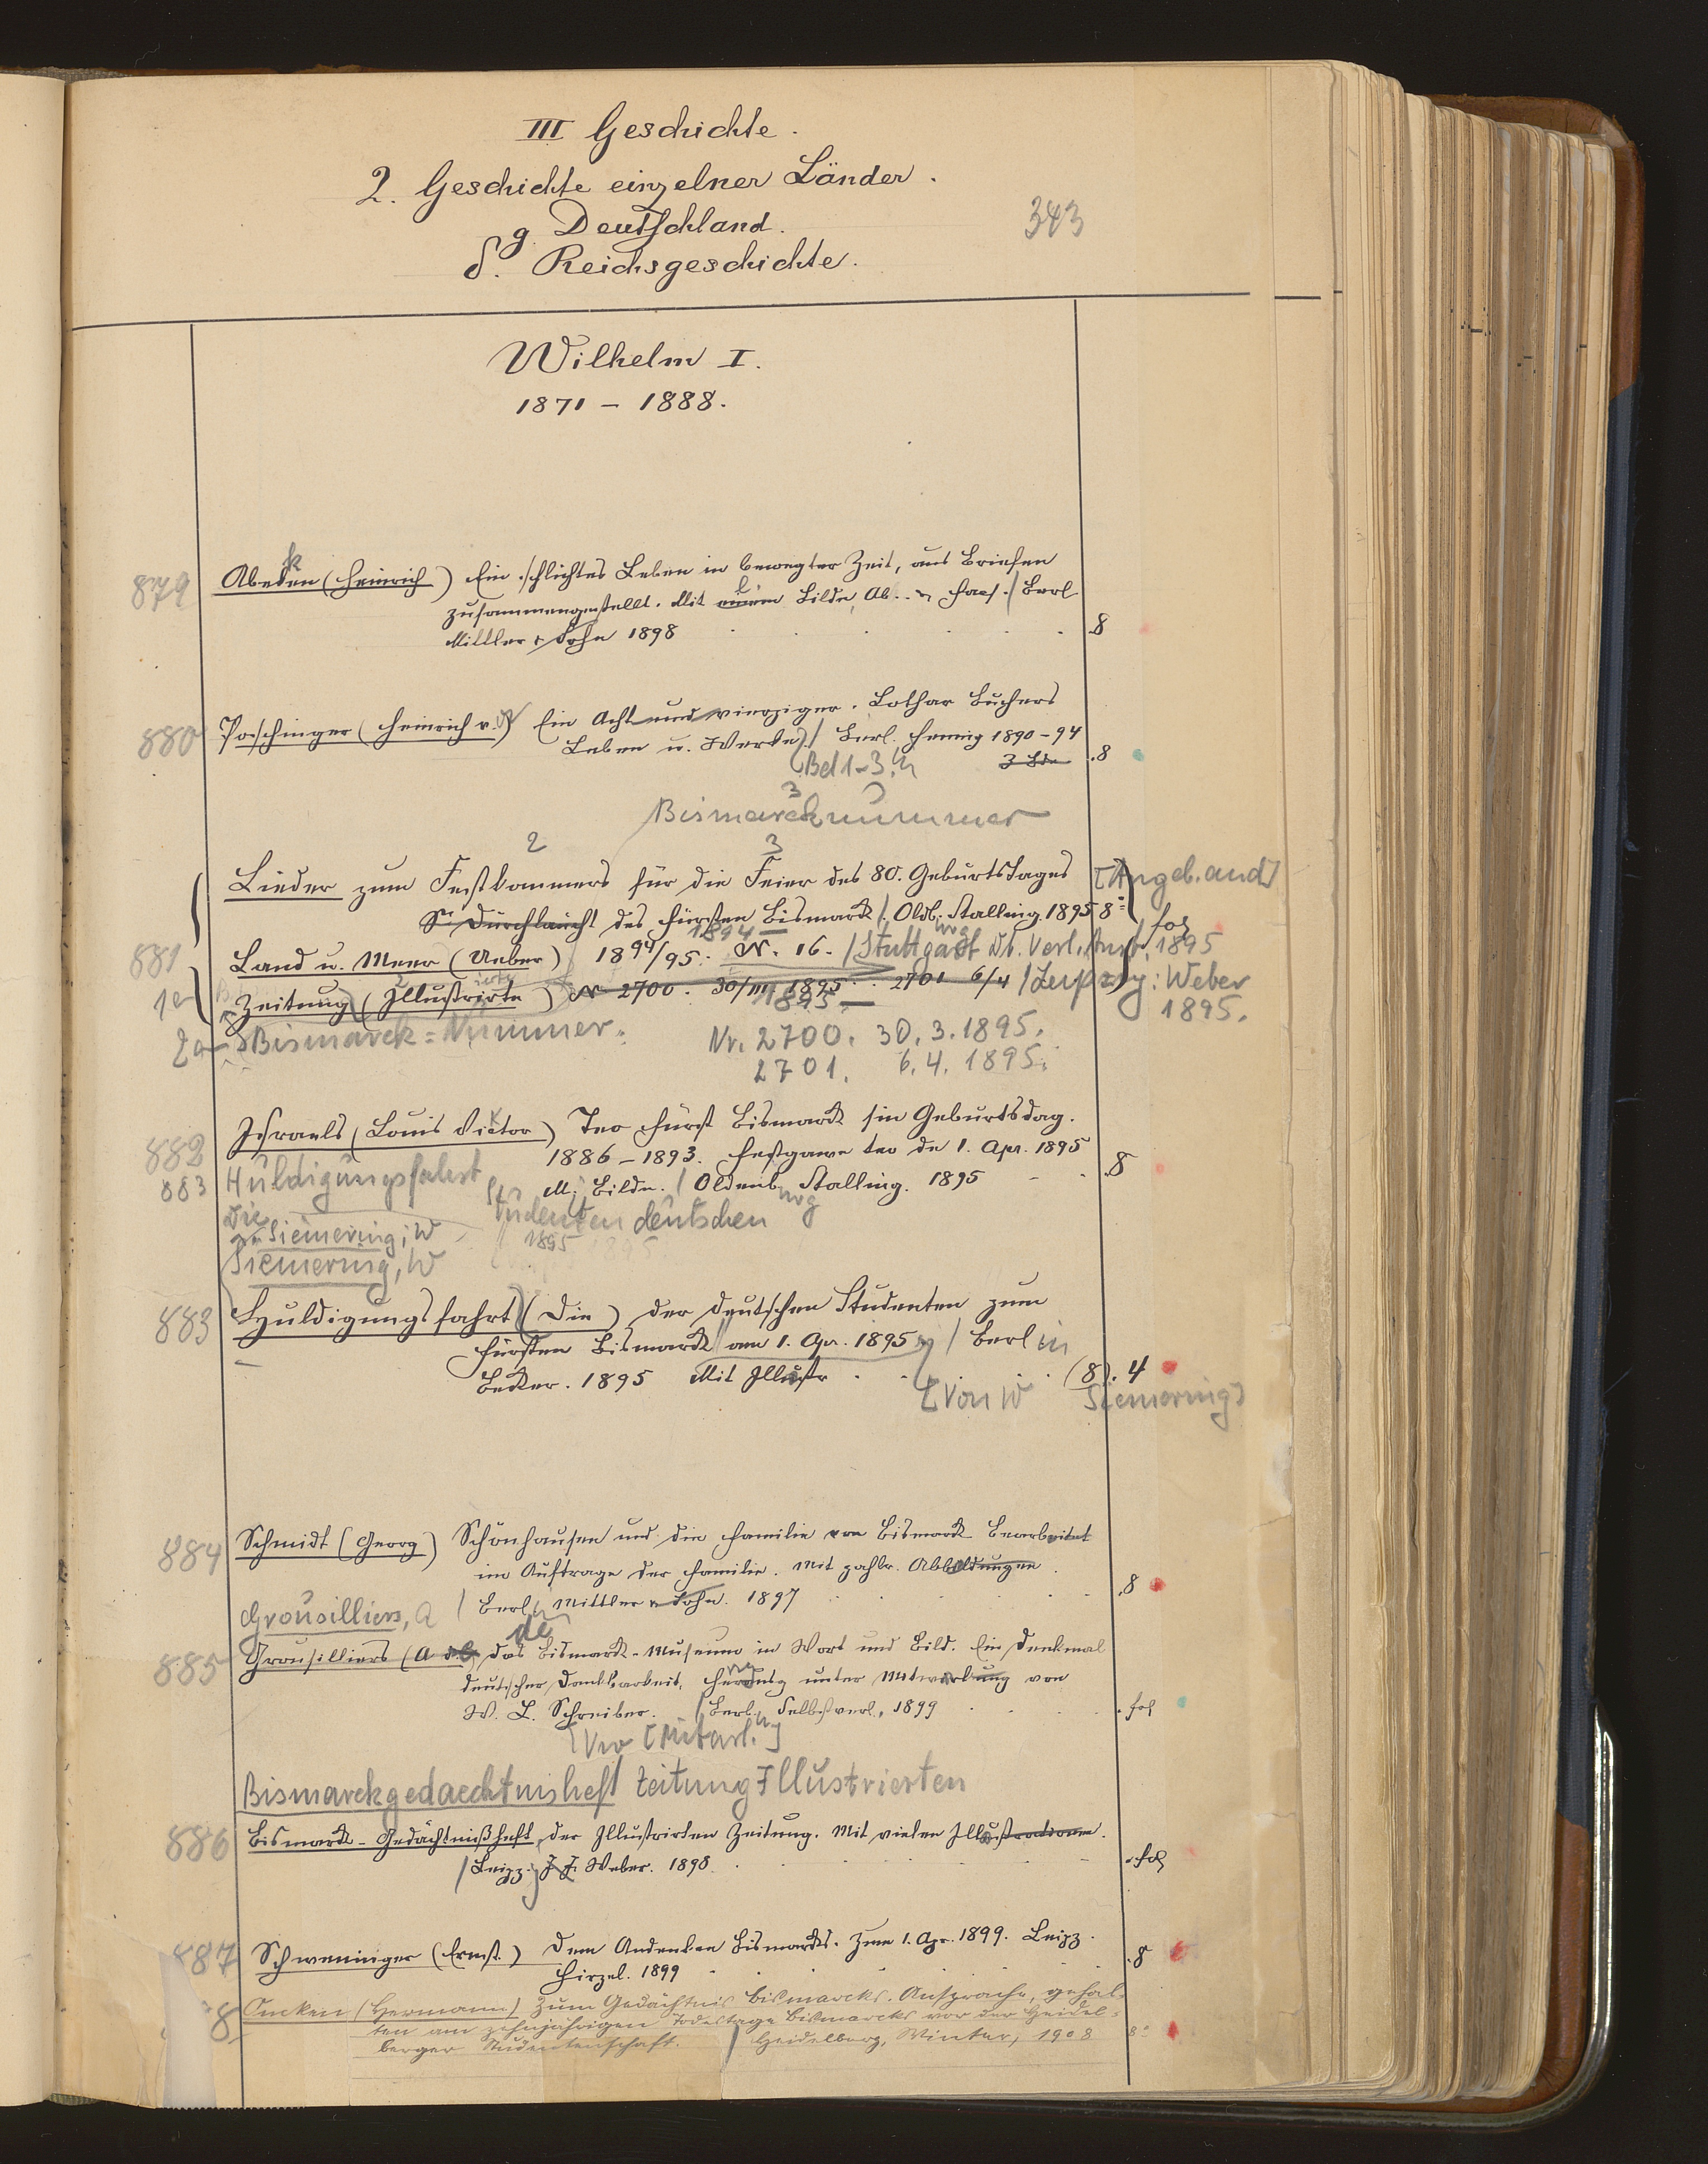 III Geschichte.
2. Geschichte einzelner Länder.
g. Deutschland.
343
δ. Reichsgeschichte.
Wilhelm I.
1871 – 1888.
k
879 Abeken (Heinrich) Ein schlichtes Leben in bewegter Zeit, aus Briefen
zusammengestellt. Mit einem Bilde, Ab.. Facs. / Berl.
Mittler & Sohn 1898 . . . . . 8
880 Poschinger (Heinrich v.) Ein Achtundvierziger. Lothar Buchers
Leben u. Werke / Berl. Hennig 1890–94
Bd 1–3. 3 Bde .8
3
Bismarcknummer
2 3
Lieder zum Festkommers für die Feier des 80. Geburtstages [Angeb. and]
Sr Durchlaucht des Fürsten Bismarck / Oldb. Stalling. 1895 8°
1894 – fol
881 Land u. Meer (Ueber) 1894/95. N. 16. / Stuttgart Dt. Verl. Anst. 1895
1a Zeitung (Illustrirte) N 2700. 30/III 1895. 2701 6/4 / Leipzig: Weber
1895 – 1895.
2a Bismarck=Nummer. Nr. 2700. 30.3.1895.
2701. 6.4.1895.
882 Israels (Louis Victor) Teo Fürst Bismarck sin Geburtsdag.
1886–1893. Festgawe teo de 1. Apr. 1895
883 Huldigungsfahrt M. Bilde. / Oldenb. Stalling. 1895 . . .8
Die Studenten deutschen
Siemering, W 1895
Siemering, W
883 Huldigungsfahrt (Die) der deutschen Studenten zum
Fürsten Bismarck am 1. Apr. 1895 / Berlin
Becker. 1895 Mit Illustr . . . (8). 4
[Von W Siemering]
884 Schmidt (Georg) Schönhausen und die Familie von Bismarck Bearbeitet
im Auftrage der Familie. Mit zahlr. Abbildungen.
Grousilliers, A / Berl. Mittler & Sohn. 1897 . . . .8
de
885 Grousilliers (A de) Das Bismarck-Museum in Wort und Bild. Ein Denkmal
deutscher Dankbarkeit, Herausg unter Mitwirkung von
W. L. Schreiber. / Berl. Selbstverl., 1899 . . . . fol
[Mitarb.]
Bismarckgedaechtnisheft Zeitung Illustrierten
886 Bismarck-Gedächtnißheft, der Illustrirten Zeitung. Mit vielen Illustrationen.
/ Leipz. J. J. Weber. 1898. . . . . fol
887 Schweninger (Ernst.) Dem Andenken Bismarcks. Zum 1. Apr. 1899. Leipz.
Hirzel. 1899 . . . . .8
8 Oncken (Hermann) Zum Gedächtnis Bismarcks. Ansprache, gehal-
ten am zehnjährigen Todestage Bismarcks vor der Heidel-
berger Studentenschaft. / Heidelberg, Winter, 1908 8°